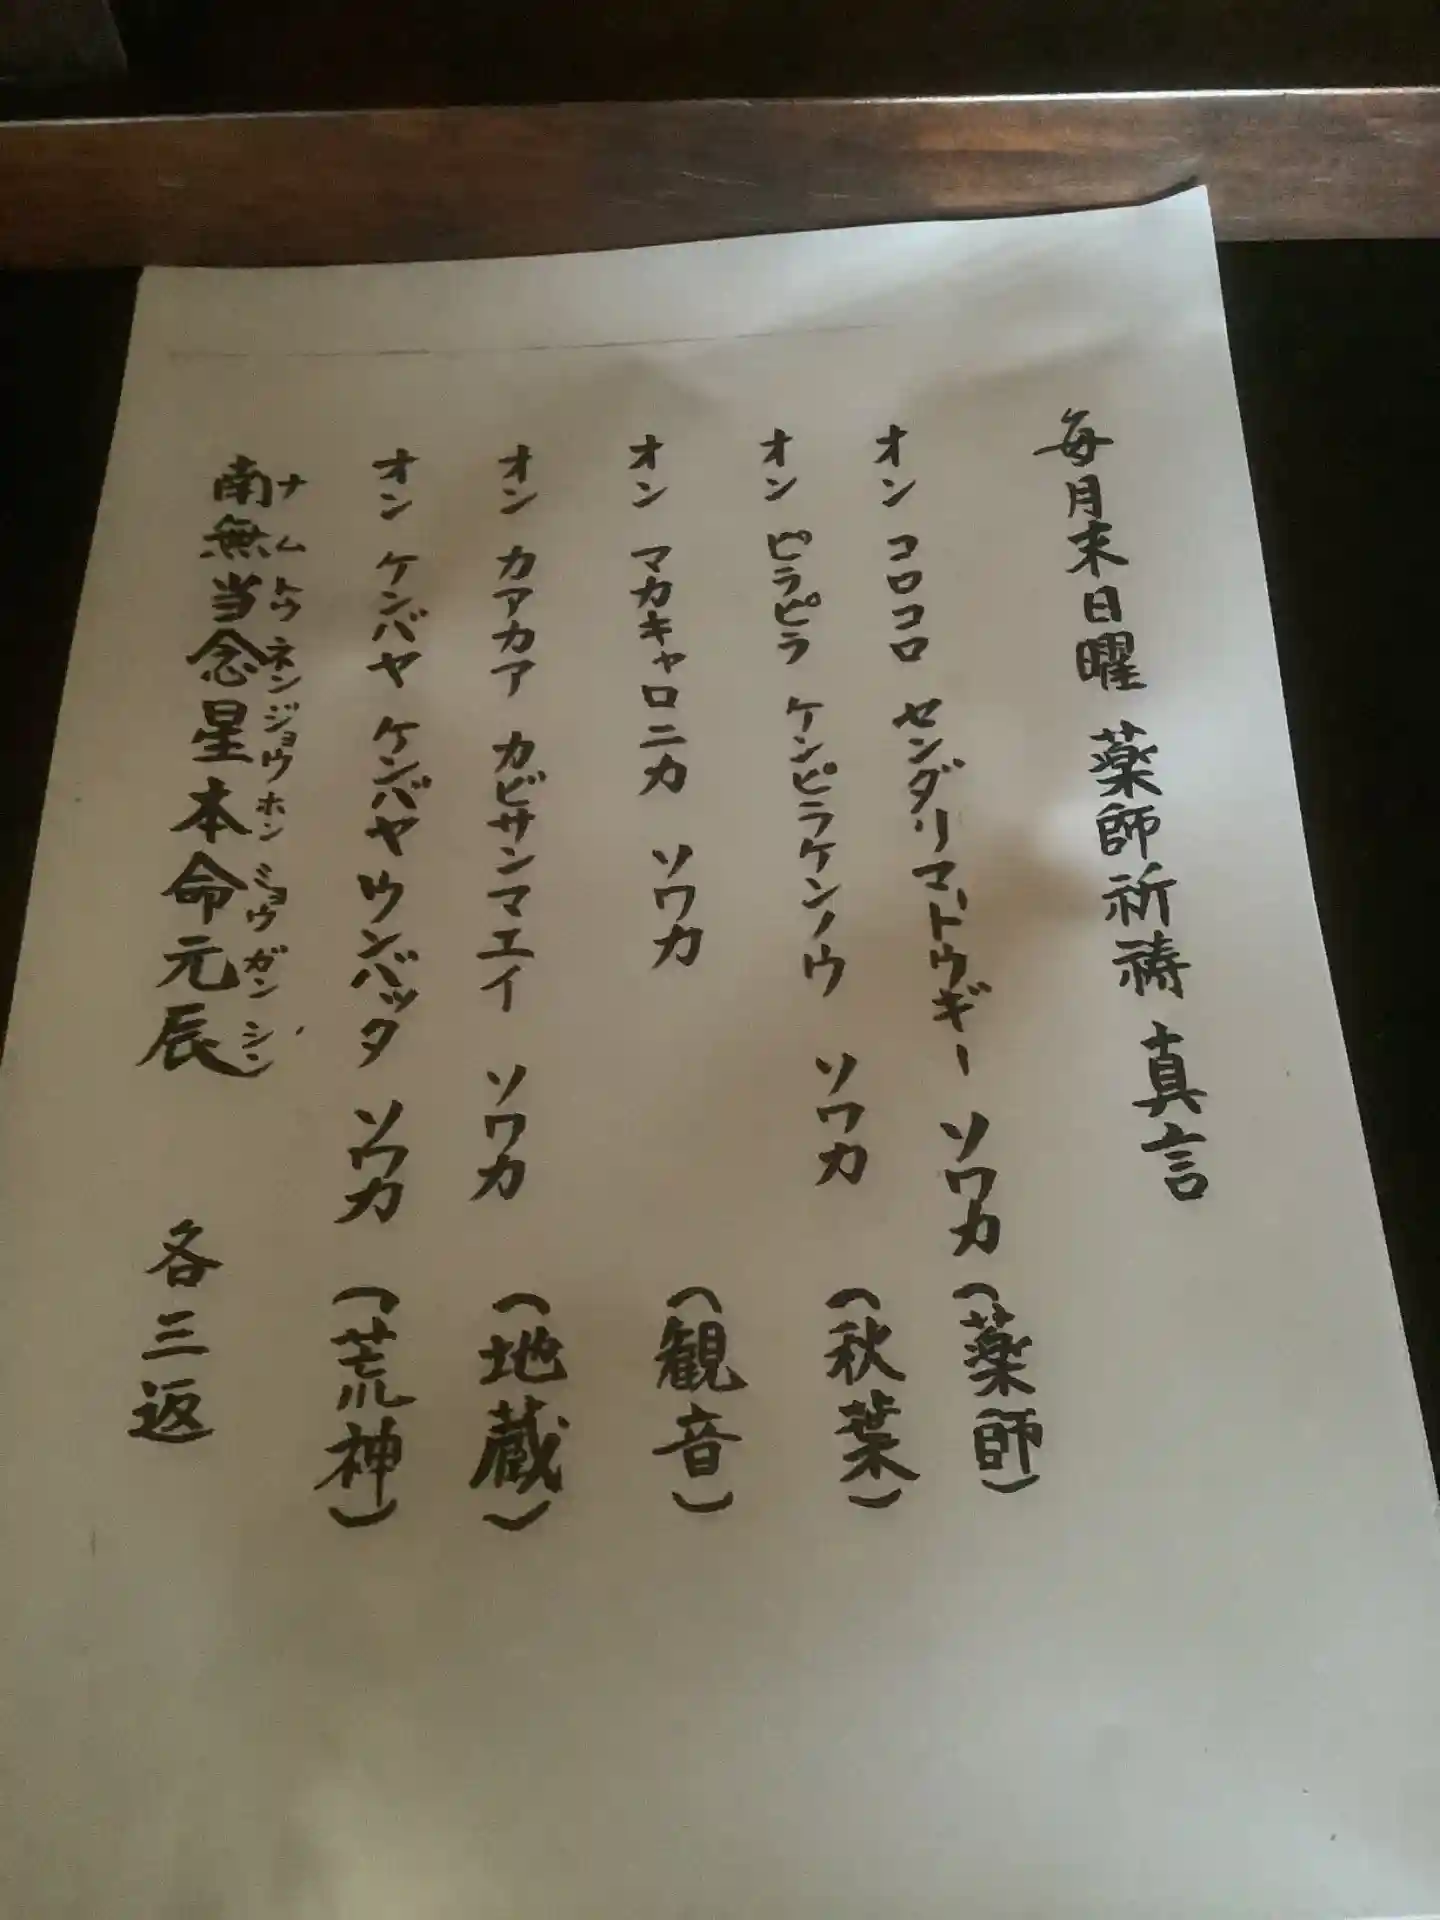 毎月末日曜 薬師祈祷 真言
オン コロコロ センダリマトウギー ソワカ (薬師)
オン ピラピラ ケンピラケンノウ ソワカ (秋葉)
オン マカキャロニカ ソワカ (観音)
オン カアカア カビサンマエイ ソワカ (地蔵)
オン ケンバヤ ケンバヤ ウンバッタ ソワカ (荒神)
ナム トウ ネン ジョウ ホン ミョウ ガン シン
南無当念星本命元辰 各三返